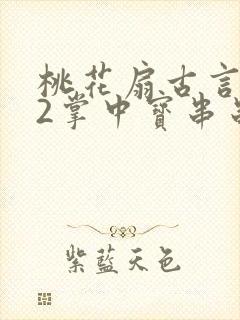 桃花扇古言
2掌中寶串
紫藍天色